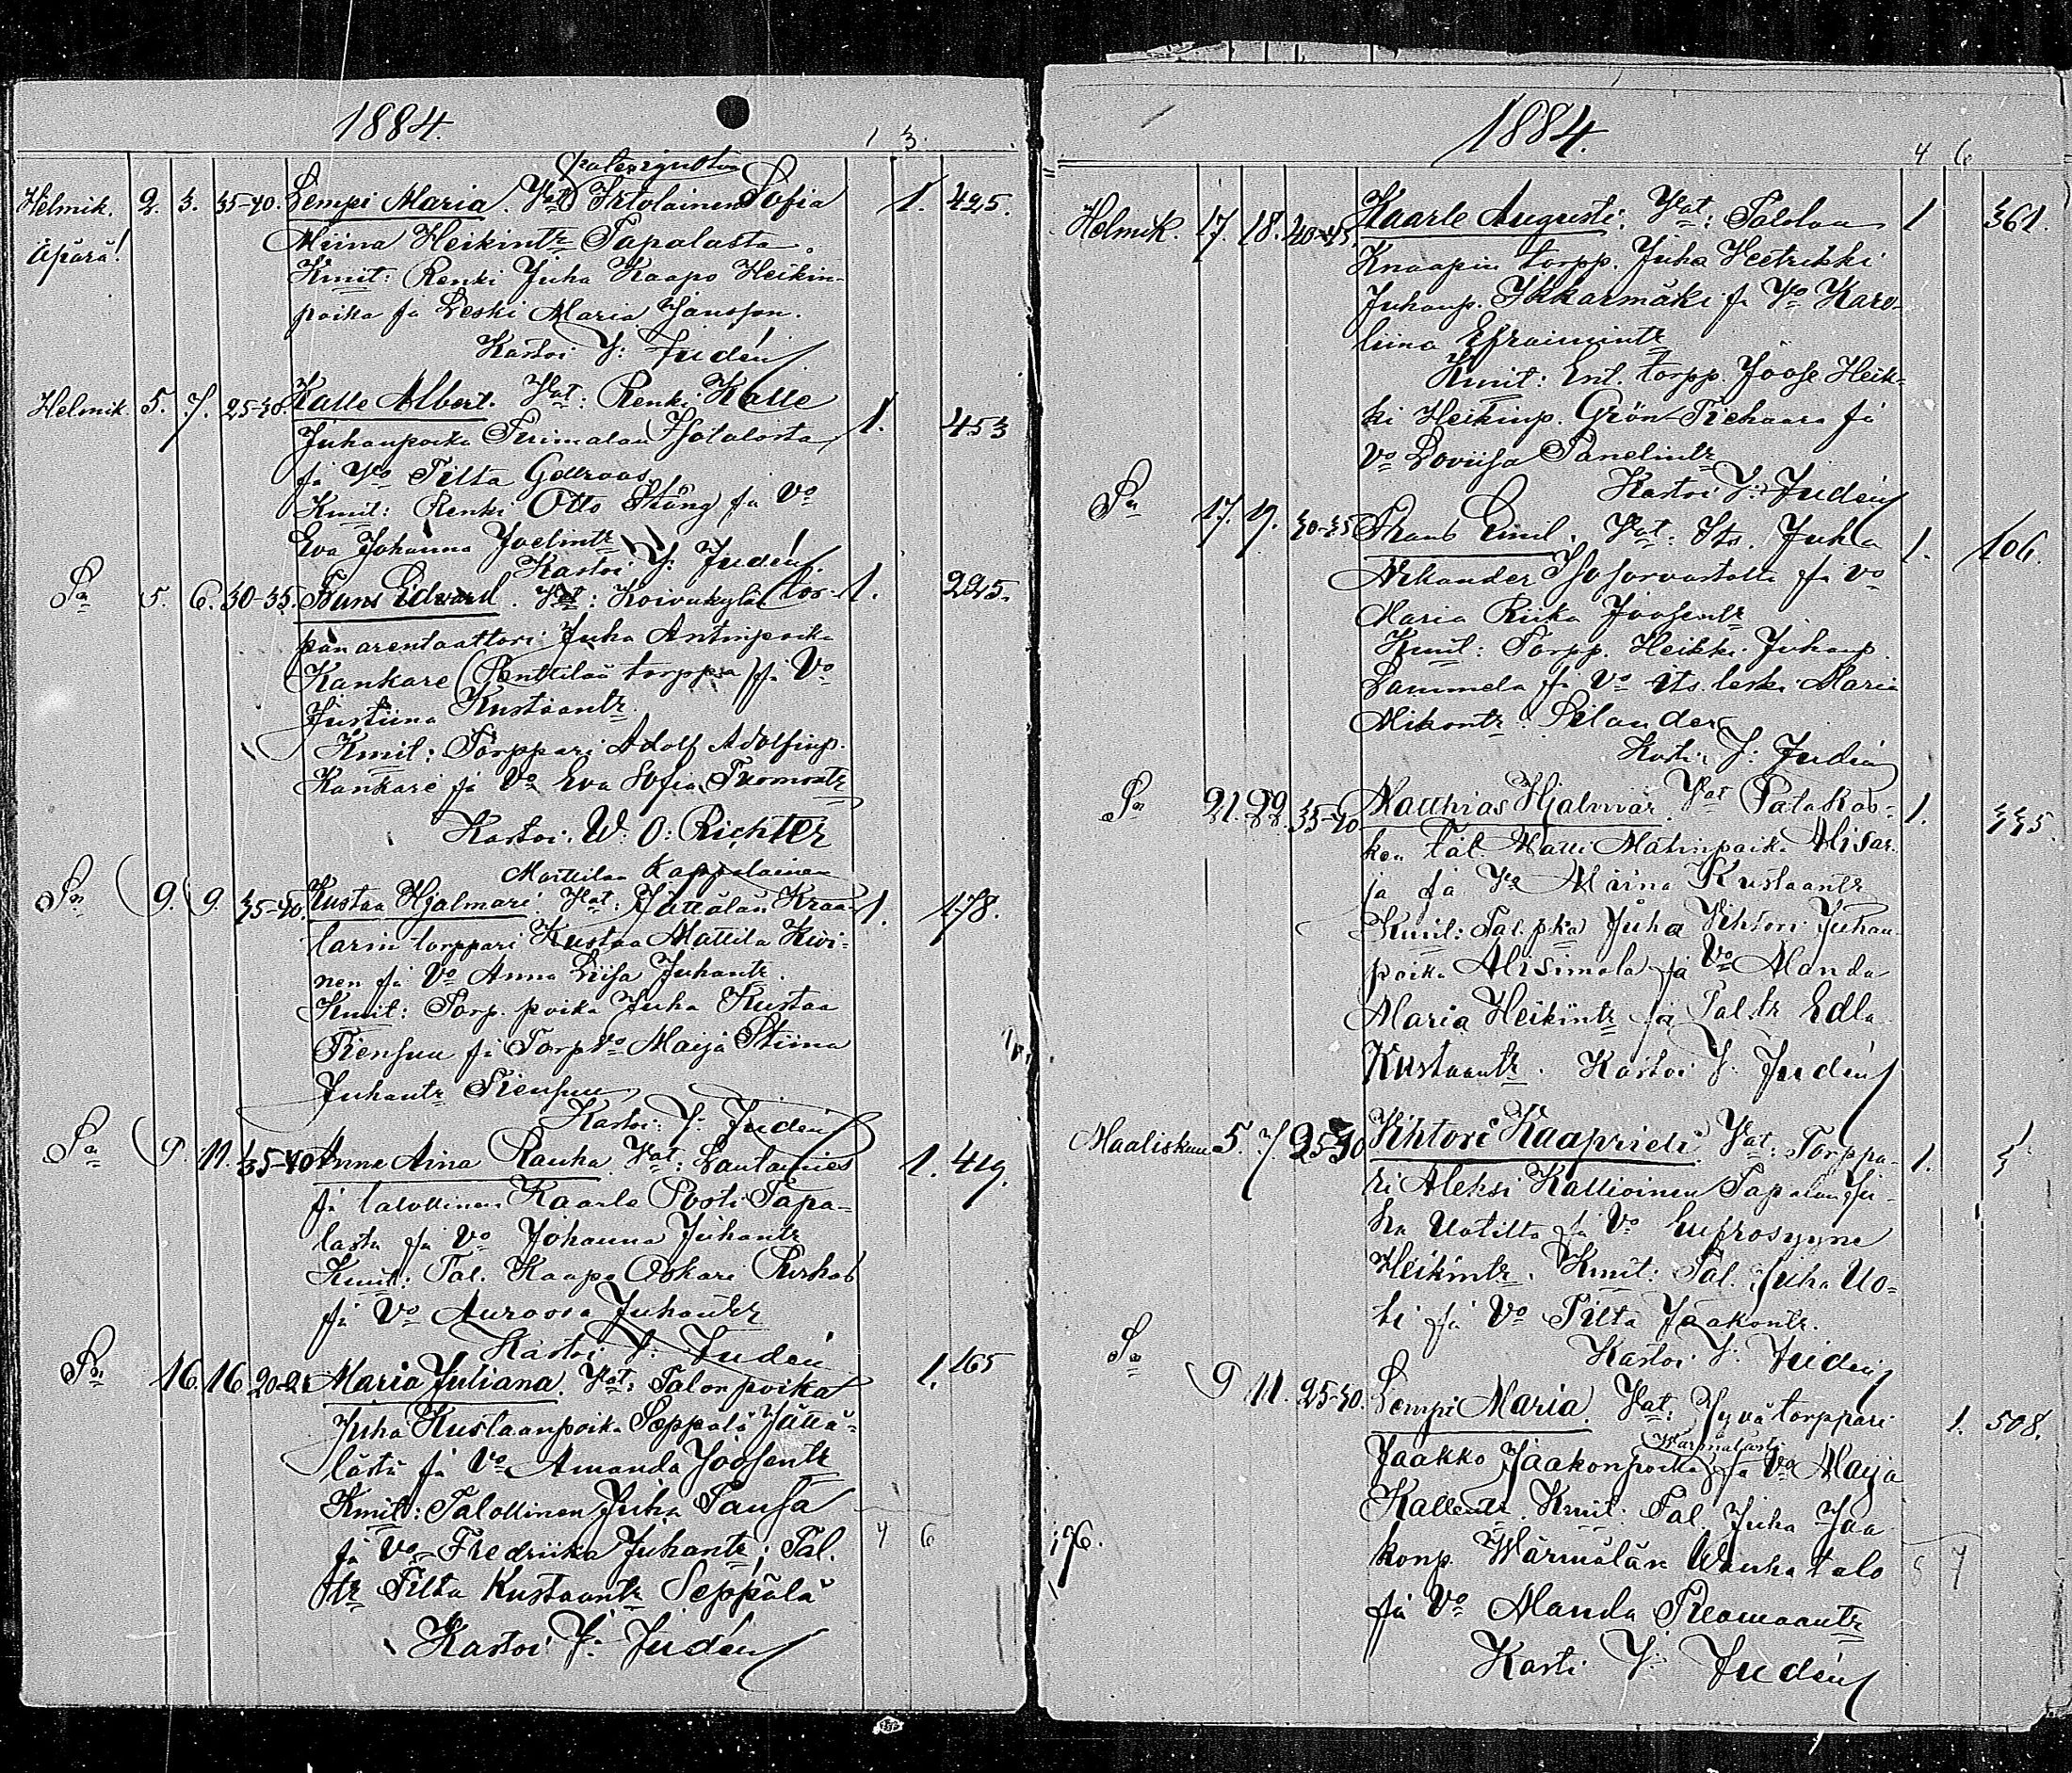 1884.
1 3.
Helmik. 2. 3. 35-40. Lempi Maria. Vat: Irtolainen Sofia 1. 425.
Äpärä! Miina Heikintr Tapalasta.
Kmit: Renki Juha Kaapo Heikin-
poika ja Leski Maria Jansson.
Kastoi J: Judén
Helmik. 5. 7. 25-30. Kalle Albert. Vat: Renki Kalle 1. 453
Juhanpoika Isotalosta
ja Vo Tilta
Kmit: Renki Otto Stång ja Vo
Eva Johanna Joelintr
Kastoi J: Judén.
Sa 5. 6. 30-35. Frans Edvard. Vat: Koivukylän tor- 1. 225.
pan arentaattori Juha Antinpoika
Kankare (Penttilän torppa) ja Vo
Justiina Kustaantr.
Kmit: Torppari Adolf Adolfinp.
Kankare ja Vo Eva Sofia Tuomontr
Kastoi W. O: Richter
Mattilan Kappalainen
Sa 9. 9. 35-40. Kustaa Hjalmari. Vat: Jättälän Kraa- 1. 178.
larin torppari Kustaa Mattila Kivi-
nen ja Vo Anna Liisa Juhantr.
Kmit: Torp. poika Juha Kustaa
Tiensuu ja Torp Vo Maija Stiina
Juhantr Tiensuu
Kastoi J: Judén
Sa 9. 11. 35-40 Anna Aina Rauha. Vat: Lautamies 1. 419.
ja talollinen Kaarle Posti Tapa-
lasta ja Vo Johanna Juhantr
Kmit: Tal. Kaapo Oskari
ja Vo Auroora Juhantr
Kastoi J: Judén
Sa 16. 16 20-21 Maria Juliana. Vat: Talonpoika 1. 165
Juha Kustaanpoika Seppälä Jättä-
lästä ja Vo Amanda Joosentr
Kmit: Talollinen Juha Pausa
ja Vo Fredriika Juhantr; Tal.
tr Tilta Kustaantr Seppälä 4 6
Kastoi J: Judén
1884.
4 6
Helmik. 17. 18. 40-45 Kaarle Augusti. Vat: 1 361.
Knaapin torpp. Juha Heetrikki
Juhanp. Ikkarmäki ja Vo Karo-
liina Efraimintr
Kmit: Ent. torpp. Joose Heik-
ki Heikinp. Grön Tiehaara ja
Vo Loviisa Tanelintr
Kastoi J: Judén
Sa 17. 19. 30-35 Frans Emil. Vat: Its. Juha 1. 106.
Nikander ja Vo
Maria Riika Joosentr
Kmit: Torpp. Heikki Juhanp.
Lammela ja Vo Its. leski Maria
Mikontr Silander
Kasti J: Judén
Sa 21. 22. 35-40 Matthias Hjalmar. Vat Palakos- 1. 335.
ken tal. Matti Matinpoika Alisar-
ja ja Vo Miina Kustaantr
Kmit: Tal. pka Juha Vihtori Juhan
poika Alisimola ja Vo Manda
Maria Heikintr ja Tal. tr Edla
Kustaantr. Kastoi J. Judén
Maaliskuu 5. 7. 25-30 Vihtori Kaaprieli. Vat: Torppa- 1. 3
ri Aleksi Kallioinen Tapalan Ju-
ha Uotilta ja Vo Eufrosyyne
Heikintr. Kmit: Tal. Juha Uo-
ti ja Vo Tilta Jaakontr.
Kastoi J: Judén
Sa 9 11. 25-30. Lempi Maria. Vat: Jyvätorppari 1. 508.
Wärmälästä
Jaakko Jaakonpoika ja Vo Maija
Kallentr. Kmit: Tal. Juha Jaa
konp. Wärmälän Wanha talo
ja Vo Manda Tuomaantr
Kasti J: Judén